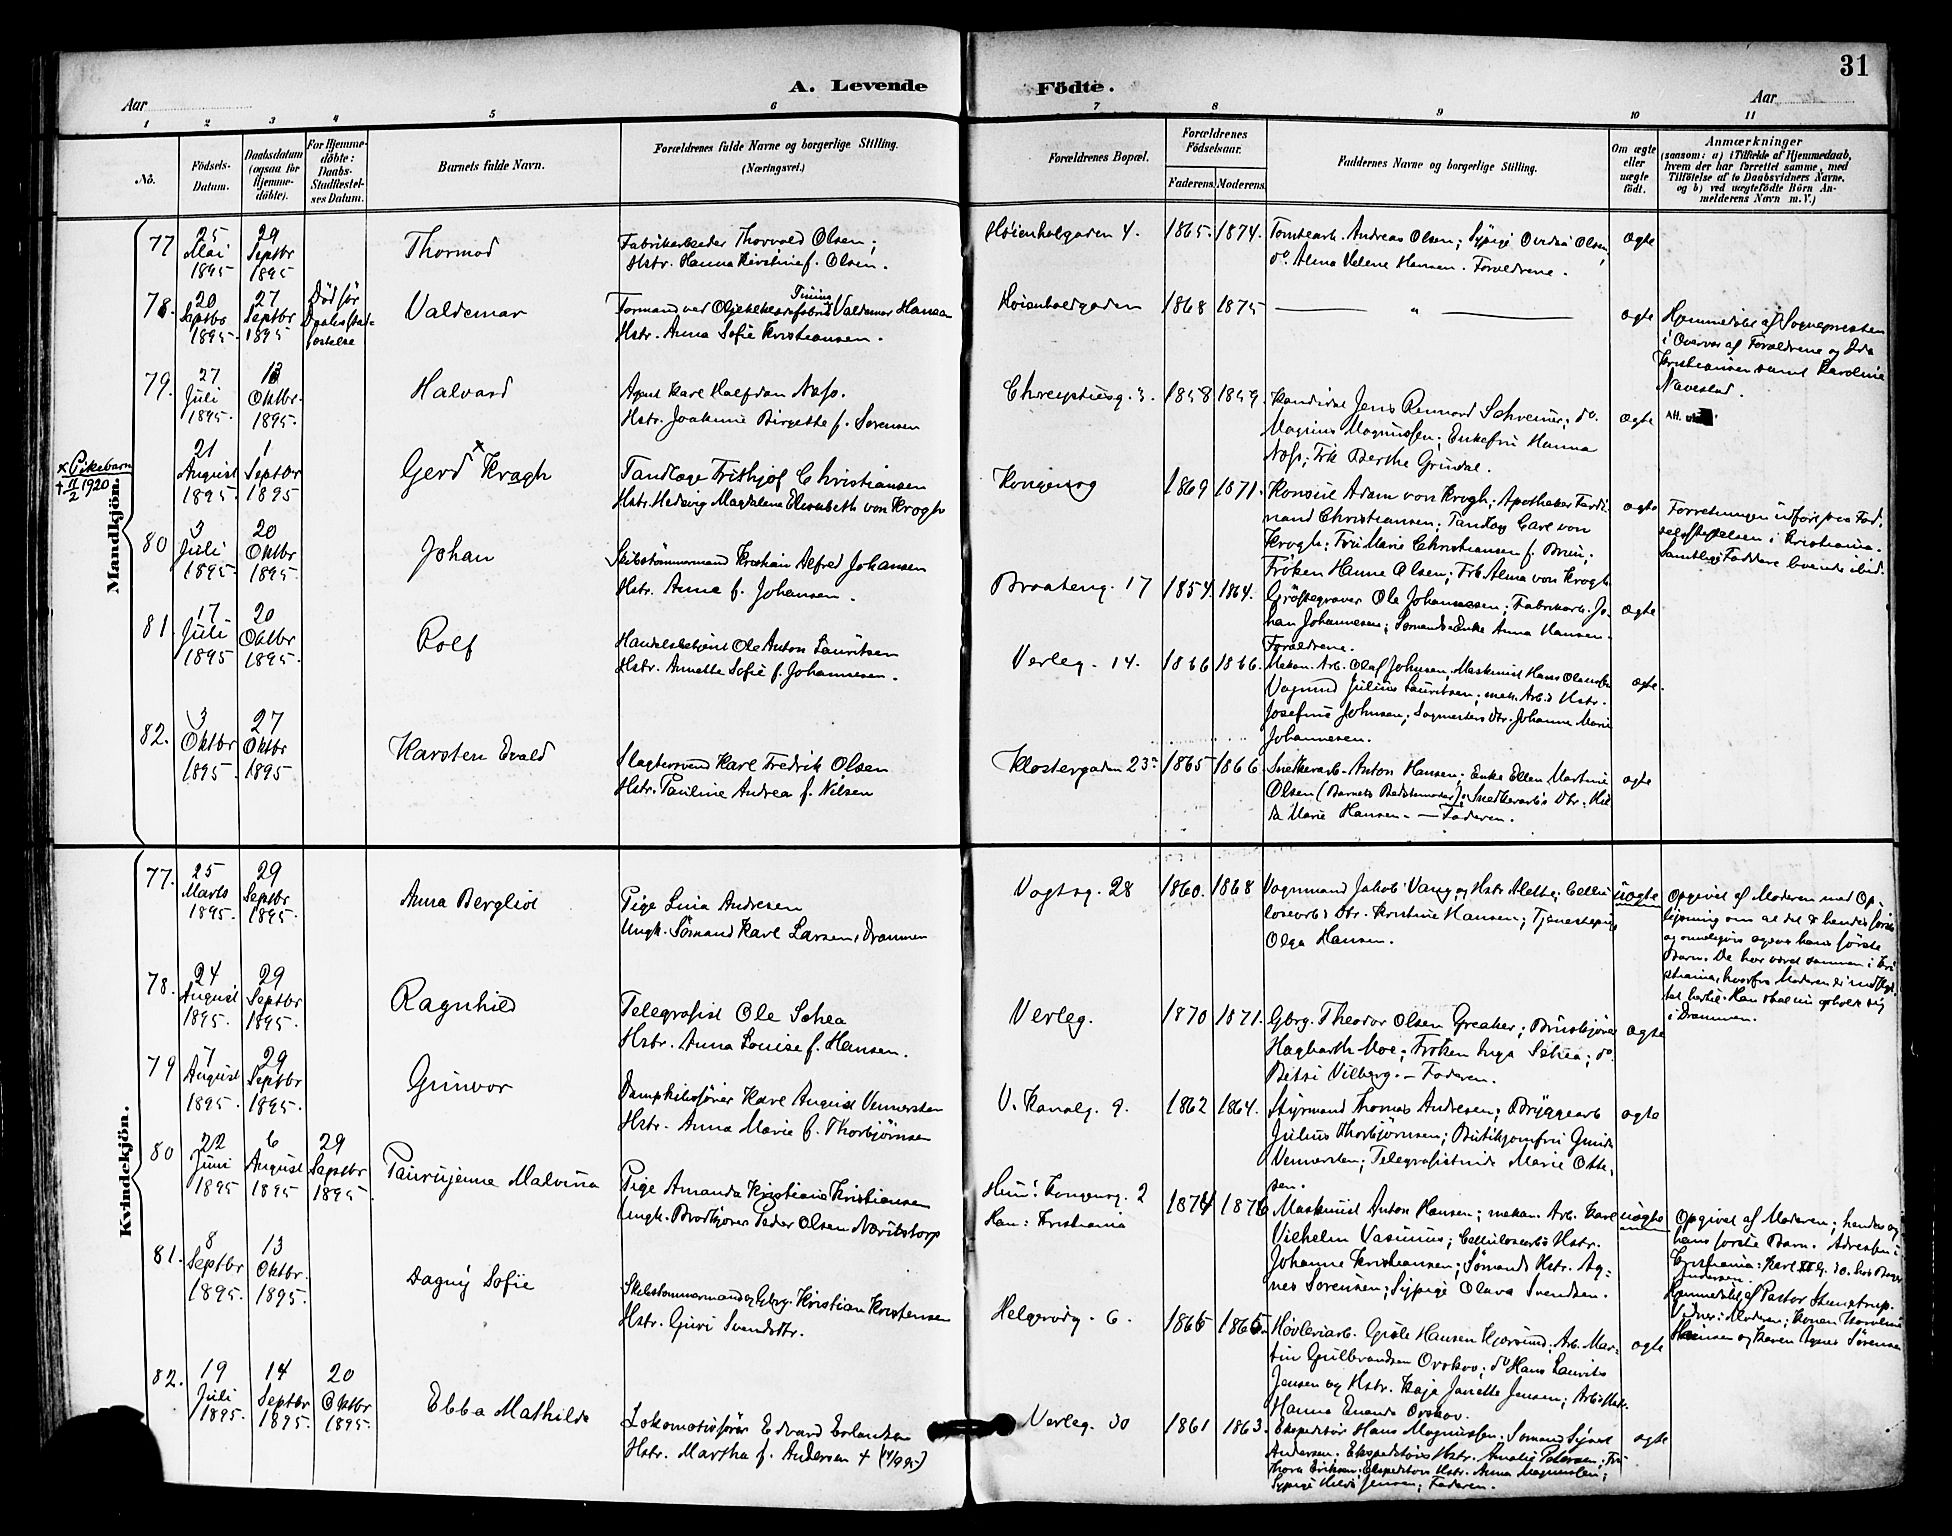 31
A. Levende Födte.
Aar
Aar
1 2 3 4 5 6 7 8 9 10 11
No.
Födsels-Datum.
Daabsdatum (ogsaa for Hjemme-döbte).
For Hjemme-döbte: Daabs-Stadfæstel-ses Datum.
Barnets fulde Navn.
Forældrenes fulde Navne og borgerlige Stilling. (Næringsvei.)
Forældrenes Bopæl.
Forældrenes Födselsaar.
Faderens. Moderens.
Faddernes Navne og borgerlige Stilling.
Om ægte eller uægte födt.
Anmærkninger
(saasom: a) i Tilfælde af Hjemmedaab,
hvem der har forrettet samme, med
Tilföielse af to Daabsvidners Navne,
og b) ved uægtefödte Börn An-
melderens Navn m.V.)
Mandkjön.
77 25 Mai 1895 29 Septbr 1895
Thormod
Fabrikarbeider Thorvald Olsen;
Hstr. Hanna Kirstine f. Olsen.
Høienholdgaden 4. 1865. 1874.
Tomtearb. Andreas Olsen; Sypige Ovidia Olsen;
do. Alma Helene Hansen. Forældrene.
ægte
78. 20 Septbr 1895 27 Septbr 1895
Død før Daabsstad-fæstelse
Valdemar
Formand ved Oljeklædefabrik Valdemar Hansen
Hstr. Anna Sofie Kristiansen.
Høienholdgaden 1868 1875
— „ —
ægte
Hjemmedøbt af Sognepresten
i Overvær af Forældrene og Ida
Kristiansen samt Karoline
Navestad.
79. 27 Juli 1895. 13 Oktbr. 1895.
Halvard
Agent Karl Halfdan Næss.
Hstr. Joakime Birgette f. Sørensen
Chrystiesg. 3. 1858 1859.
Kandidat Jens Rennord Schreiner; do.
Magnus Magnussen; Enkefru Hanna
Næss; Frk Berthe Grindal.
ægte
Att.
x Pikebarn
† 11/2 1920
21 August 1895 1 Septbr 1895
Gerd x Krogh
Tandlæge Frithjof Christiansen
Hstr. Hedevig Magdalene Elisabeth von Krogh
Kongensg 1869 1871.
Konsul Adam von Krogh; Apotheker Ferdi-
nand Christiansen; Tandlæg Carl von
Krogh; Fru Marie Christiansen f. Bruu;
Frøken Hanne Olsen; Frk Alma von Krogh
ægte
Forretningen udført paa Fød-
selsstiftelsen i Kristiania.
Samtlige Faddere boende ibid.
80 3 Juli 1895. 20 Oktbr 1895.
Johan
Skibstømmermand Kristian Alfred Johansen
Hstr. Anna f. Johansen.
Braateng. 17 1854. 1864.
Grøftegraver Ole Johannessen; Fabrikarb. Jo-
han Johannesen; Sømands-Enke Anna Hansen.
Forældrene.
ægte
81. 17 Juli 1895 20 Oktbr 1895.
Rolf
Handelsbetjent Ole Anton Lauritsen
Hstr. Annette Sofie f. Johannesen.
Verleg. 14. 1866 1866.
Mekan. Arb. Olaf Johnsen, Maskinist Hans Olausen
Vognmd Julius Lauritsen; mek. Arb.s Hstr.
Josefine Johnsen; Sagmesters Dtr. Johanne Marie
Johannesen.
ægte.
82. 3 Oktbr 1895. 27 Oktbr 1895
Karsten Evald
Slagtersvend Karl Fredrik Olsen
Hstr. Pauline Andrea f. Nilsen
Klostergaden 23 1865 1866.
Snedkerarb. Anton Hansen; Enke Ellen Martine
Olsen (Barnets Bedstemoder); Snedkerarb's Dtr. Hil-
da Marie Hansen. — Faderen.
ægte
Kvindekjön.
77. 25 Marts 1895. 29 Septbr. 1895.
Anna Bergliot
Pige Lina Andresen
Ungk. Sømand Karl Larsen, Drammen
Vogtsg. 28 1860. 1868
Vognmand Jakob Vang og Hstr Alette; Cellu-
losearb's Dtr. Kristine Hansen; Tjenestepige
Olga Hansen.
uægte
Opgivet af Moderen med Op-
lysning om at det er hendes første
og omdelignis ogsaa hans første
Barn. De har været sammen i Kri-
stiania, hvorfra Moderen er indflyt-
tet hertil. Han skal nu opholde sig
i Drammen.
78. 24 August 1895. 29 Septbr 1895.
Ragnhild
Telegrafist Ole Schea
Hstr. Anna Louise f. Hansen.
Verleg. 1870 1871.
Gbrg. Theodor Olsen Greaker; Bruskjører
Hagbarth Moe; Frøken Inga Schea; do.
Betsi Vilberg. — Faderen.
ægte
79 7 August 1895. 29 Septbr 1895.
Gunvor
Dampskibsfører Karl August Vennersten
Hstr. Anna Marie f. Thorbjørnsen
V. Kanalg. 9. 1862 1864.
Styrmand Thomas Andresen; Bryggearb
Julius Thorbjørnsen; Butikjomfru Gunda
Vennersten; Telegrafistinde Marie Otte-
sen.
ægte
80 22 Juni 1895 6 August 1895 29 Septbr 1895.
Malvina
Pige Amanda Kristiane Kristiansen
Ungk. Brødkjører Peder Olsen
Hun: Kongensg. 2
Han: Kristiania
1874 1876
Maskinist Anton Hansen; mekan. Arb. Karl
Vilhelm; Cellulosearb's Hstr.
Johanne Kristiansen; Sømands Hstr. Ag-
nes Sørensen; Sypige Oluva Svendsen.
uægte
Opgivet af Moderen; hendes og
hans første Barn. Adressen i
Kristiania: Karl XII g. 30, hos Bager
Andersen.
Hjemmedøbt af Pastor Stenstrup.
Vidner: Moderen; Konen Karoline
Hansen og Konen Agnes Sørensen
81. 8 Septbr 1895. 13 Oktbr. 1895.
Dagny Sofie
Skibstømmermand og Gbrg. Kristian Kristensen
Hstr. Guri Svendsdtr.
Helgerødg. 6. 1865 1865.
Høvleriarb. Gisle Hansen Kjærsund; Arb. Mar-
tin Gulbrandsen Orskov; do Hans Laurits
Jensen og Hstr. Kaja Janette Jensen; Arb.s Hstr.
Hanna Orskov.
ægte
82. 19 Juli 1895. 14 Septbr 1895. 20 Oktbr 1895.
Ebba Mathilde
Lokomotivfører Edvard Erlandsen
Hstr. Martha f. Andersen † (4/9 95)
Verleg. 30 1861 1863.
Ekspeditør Hans Magnussen; Sømand Sigurd
Andersen; Ekspeditørs Hstr. Amalie Petersen; Fru
Thora Eriksen; Ekspeditørs Hstr. Anna Magnussen;
Sypige Hilda Jensen; Faderen.
ægte